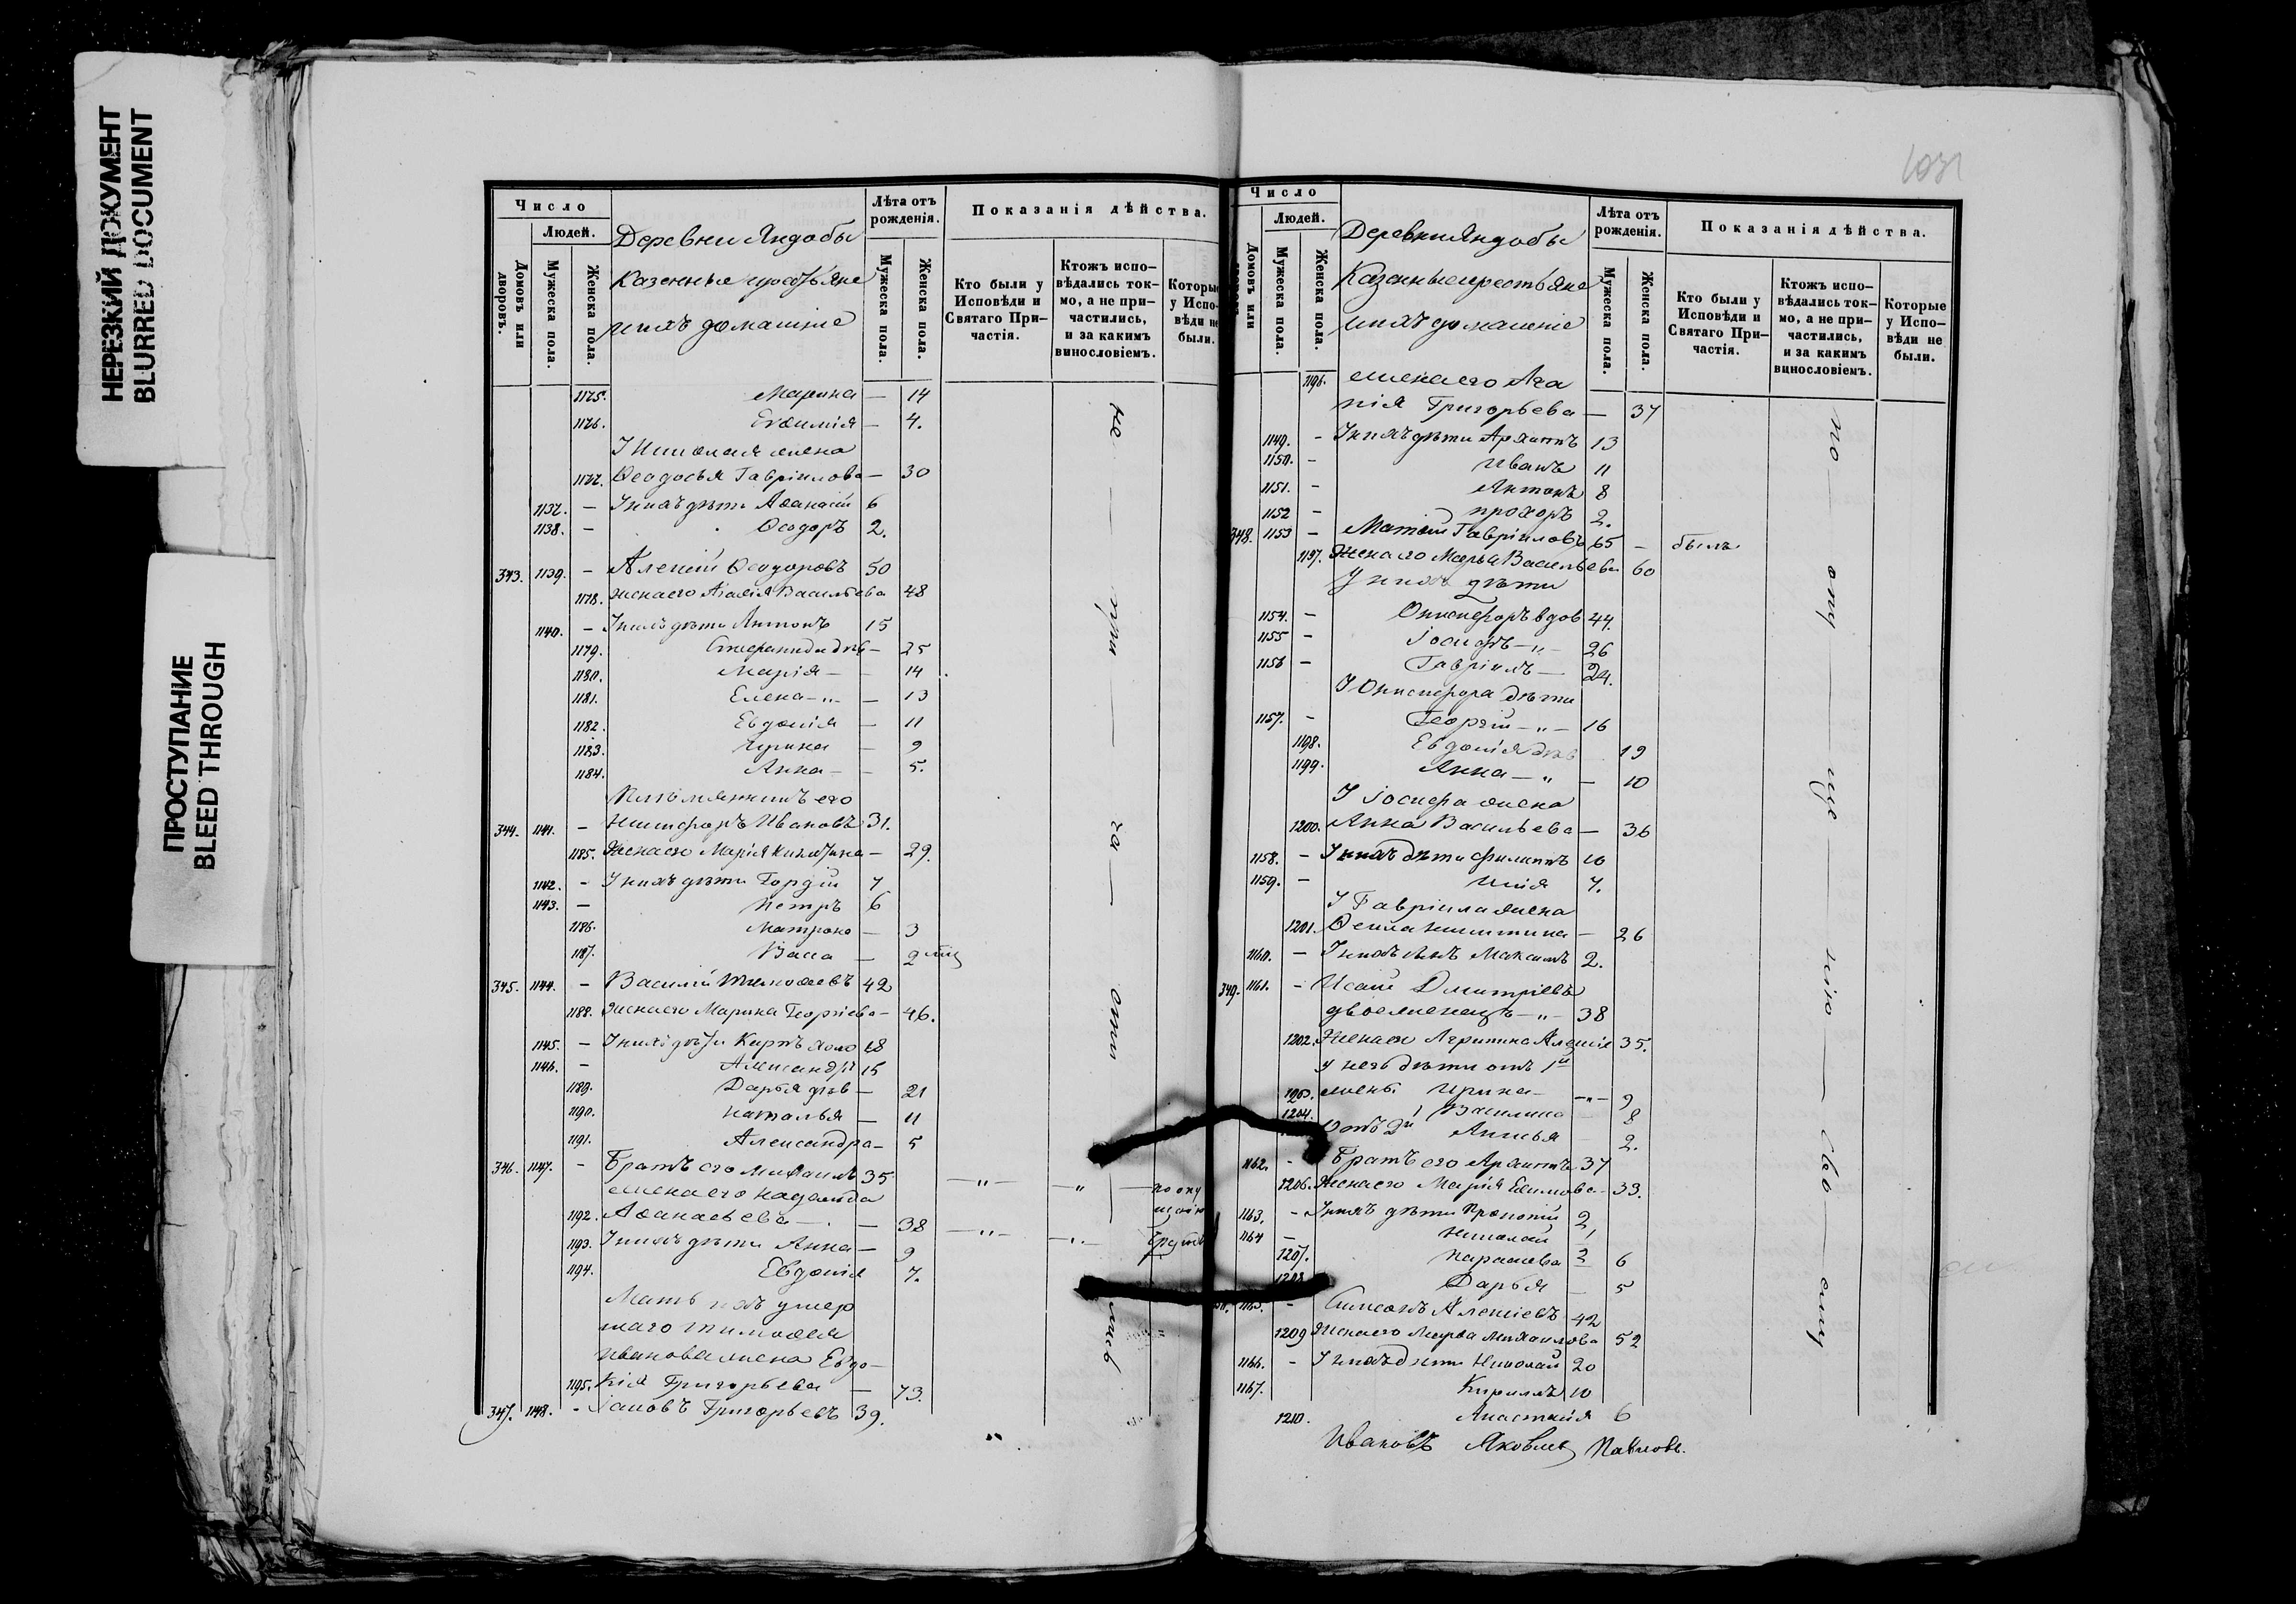 НЕРЕЗКИЙ ДОКУМЕНТ
BLURRED DOCUMENT
ПРОСТУПАНИЕ
BLEED THROUGH
Число
Людей.
Домовъ или дворовъ.
Мужеска пола.
Женска пола.
Деревни Яндобы
Казенные крестьяне
и ихъ домашніе
Лѣта отъ рожденія.
Мужеска пола.
Женска пола.
Показанія дѣйства.
Кто были у Исповѣди и Святаго При-частія.
Ктожъ испо-вѣдались ток-мо, а не при-частились, и за какимъ винословіемъ.
Которые у Испо-вѣди не были.
1175. Марина — 14
1176. Евѳимія — 4.
У Николая жена
1177. Ѳеодосья Гавріилова — 30
1137. — У нихъ дѣти Аѳанасій 6
1138. — Ѳеодоръ 2.
343. 1139. — Алексій Ѳеодоровъ 50
1178. Жена его Васильева 48
1140. — У нихъ дѣти Антонъ 15
1179. дѣв — 25
1180. Марія — 14
1181. Елена — „ — 13
1182. Евдокія — 11
1183. Ирина — 9
1184. Анна — 5.
его
344. 1141. — Никифоръ Ивановъ 31.
1185. Жена его Марія Никитина — 29.
1142. — У нихъ дѣти Гордій 7
1143. — Петръ 6
1186. Матрона — 3
1187. Васса — 2
345. 1144. — Василій Тимоѳеевъ 42
1188. Жена его Марина Георгіева — 46.
1145. — У нихъ дѣти Киръ холо 18
1146. — Александръ 15
1189. Дарья дѣв — 21
1190. Наталья — 11
1191. Александра — 5
346. 1147. — Братъ его Михаилъ 35 — „ — „ — по опу
жена его Надежда
1192. Аѳанасьева — 38 — „ — „ —
1193. У нихъ дѣти Анна — 9
1194. Евдокія 7.
Мать ихъ умер
шаго Тимоѳея
Иванова жена Евдо-
1195. кія Григорьева — 73.
347. 1148. — Іаковъ Григорьевъ 39.
не — при — ча — сти — лись
1031
Число
Людей.
Домовъ или
Мужеска пола.
Женска пола.
Деревни Яндобы
Казенные крестьяне
и ихъ домашніе
Лѣта отъ рожденія.
Мужеска пола.
Женска пола.
Показанія дѣйства.
Кто были у Исповѣди и Святаго При-частія.
Ктожъ испо-вѣдались ток-мо, а не при-частились, и за какимъ винословіемъ.
Которые у Испо-вѣди не были.
1196. жена его Ага
пія Григорьева — 37
1149. — У нихъ дѣти Архипъ 13
1150. — Иванъ 11
1151. — Антонъ 8
1152 — Прохоръ 2.
348. 1153 — Матѳій Гавріиловъ 65 — былъ
1197. Жена его Марья Васильева 60
У нихъ дѣти
1154. — Онисифоръ вдов 44.
1155 — Іосифъ — „ — 26
1156 — Гавріилъ — 24.
У Онисифора дѣти
1157. — Георгій — „ — 16
1198. Евдокія дѣв 19
1199. Анна — „ — 10
У Іосифа жена
1200. Анна Васильева — 36
1158. — У нихъ дѣти Филиппъ 10
1159. — Илія 7.
У Гавріила жена
1201. Ѳекла Никитина — 26
1160. — У нихъ сынъ Максимъ 2.
349. 1161. — Исаій Дмитріевъ
двоеженецъ — „ — 38
1202. Жена его Агрипина Алексія 35.
У него дѣти отъ 1й
1203. жены Ирина — „ — 9
1204. Василиса 8
отъ 2й 2.
1162. — Братъ его Архипъ 37
1206. Жена его Марія Еѳимова — 33.
1163. — У нихъ дѣти Прокопій 2
1164 — Николай 1
1207. Параскева 6
1208 Дарья — 5
1165. — Симеонъ Алексіевъ 42
1209 Жена его Марѳа Михаилова 52
1166. — У нихъ дѣти Николай 20
1167. Кирилъ 10
1210. Анастасія 6
Ивановъ Яковлевъ Павловъ.
по — опу — ще — нію — сво — ему